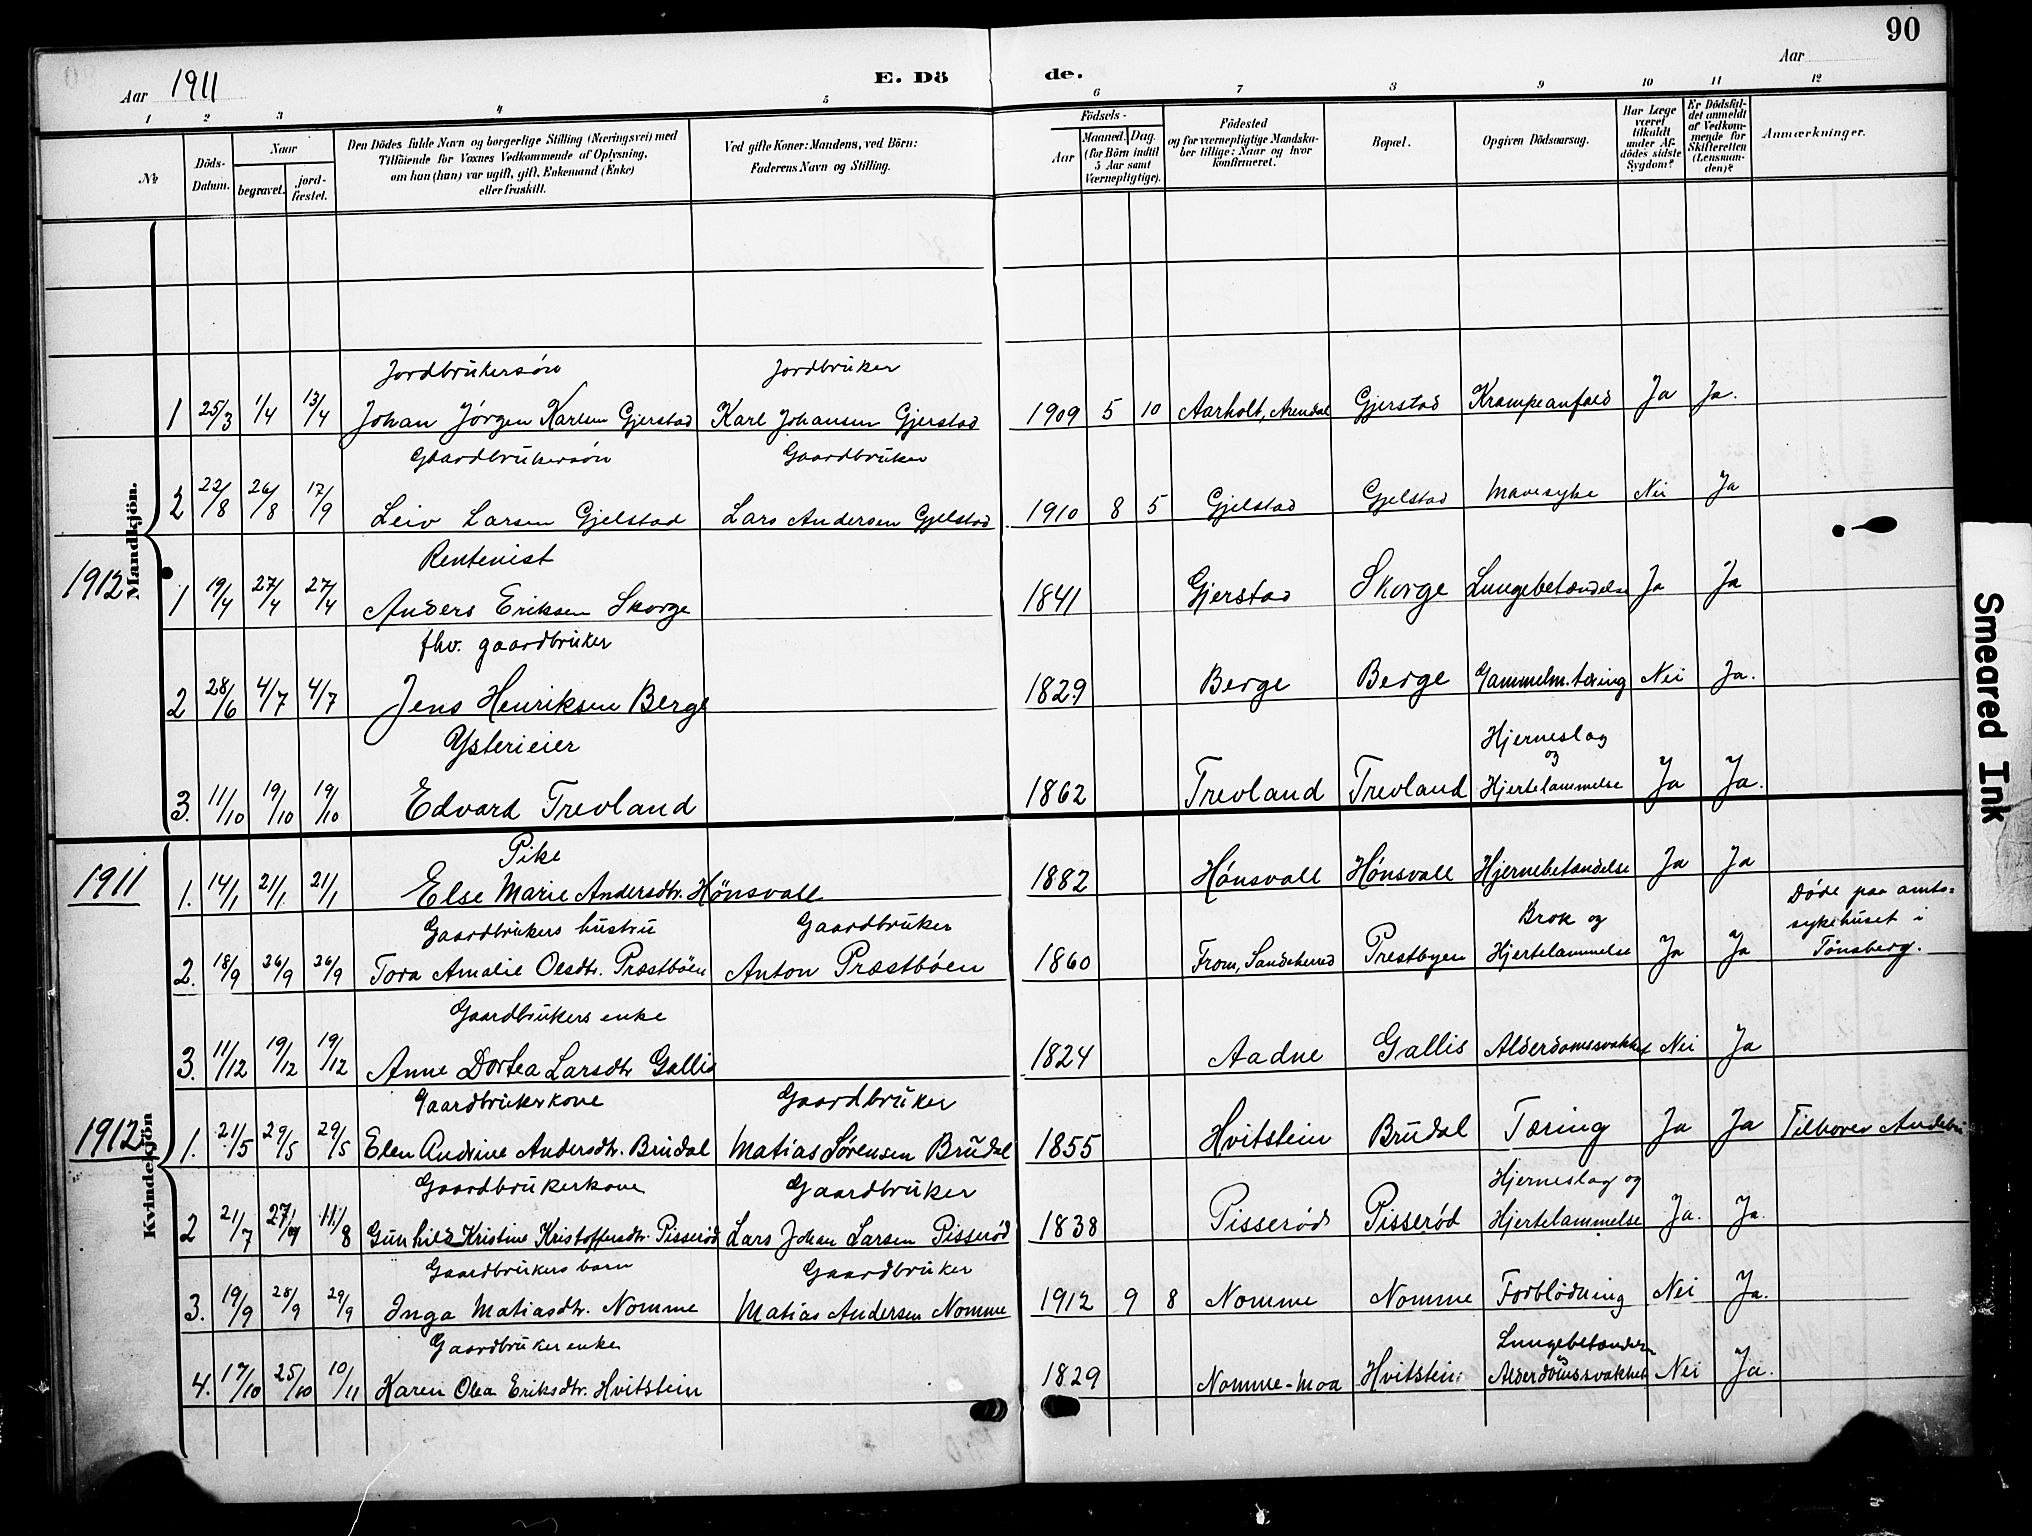 90
Aar 1911
E. Dö de.
Aar
1 2 3 4 5 6 7 8 9 10 11 12
No
Döds-Datum.
Naar
begravet.
jord-fæstet.
Den Dödes fulde Navn og borgerlige Stilling (Næringsvei) med
Tilföiende for Voxnes Vedkommende af Oplysning,
om han (hun) var ugift, gift, Enkemand (Enke)
eller fraskilt.
Ved gifte Koner: Mandens, ved Börn:
Faderens Navn og Stilling.
Födsels-
Aar
Maaned. Dag.
(for Börn indtil
5 Aar samt
Værnepligtige).
Födested
og for værnepligtige Mandskaber tillige: Naar og hvor
konfirmeret.
Bopæl.
Opgiven Dödsaarsag.
Har Læge været tilkaldt under Afdödes sidste Sygdom?
Er Dödsfaldet anmeldt af Vedkommende for Skifteretten (Lensmanden)?
Anmærkninger.
Mandkjön.
Jordbrukersøn Jordbruker
1 25/3 1/4 13/4 Johan Jørgen Karlsen Gjerstad Karl Johansen Gjerstad 1909 5 10 Aarholt, Arendal Gjerstad Krampeanfald Ja Ja.
Gaardbrukersøn Gaardbruker
2 22/8 26/8 17/9 Leiv Larsen Gjelstad Lars Andersen Gjelstad 1910 8 5 Gjelstad Gjelstad Mavesyke Nei Ja
Rentenist
1912 1 19/4 27/4 27/4 Anders Eriksen Skorge 1841 Gjerstad Skorge Lungebetændelse Ja Ja
fhv. gaardbruker
2 28/6 4/7 4/7 Jens Henriksen Berge 1829 Berge Berge Gammelm.tæring Nei Ja.
Ysterieier Hjerneslag
og
3. 11/10 19/10 19/10 Edvard Trevland 1862 Trevland Trevland Hjertelammelse Ja Ja.
Pike
1911 1. 14/1 21/1 21/1 Else Marie Andersdtr. Hönsvall 1882 Hønsvall Hønsvall Hjernebetændelse Ja Ja
Gaardbrukers hustru Gaardbruker Brok og Døde paa amts=
sykehuset i
2. 18/9 26/9 26/9 Tora Amalie Olsdtr. Præstbøen Anton Præstbøen 1860 From, Sandeherred Prestbyen Hjertelammelse Ja Ja Tønsberg.
Gaardbrukers enke
3. 11/12 19/12 19/12 Anne Dortea Larsdtr Gallis 1824 Aadne Gallis Alderdomssvakhet Nei Ja
Kvindekjön
Gaardbrukerkone Gaardbruker
1912 1. 21/5 29/5 29/5 Elen Andrine Andersdtr. Brudal Matias Sørensen Brudal 1855 Hvitstein Brudal Tæring Ja Ja Tilhører Andebu
Gaardbrukerkone Gaardbruker Hjerneslag og
2 21/7 11/8 Gunhild Kristine Kristoffersdtr. Pisserød Lars Johan Larsen Pisserød 1838 Pisserød Pisserød Hjertelammelse Ja. Ja.
Gaardbrukers barn Gaardbruker
3. 19/9 28/9 29/9 Inga Matiasdtr. Nomme Matias Andersen Nomme 1912 9 8 Nomme Nomme Forblødning Nei Ja.
Gaardbruker enke Lungebetændelse
4. 17/10 25/10 10/11 Karen Olea Eriksdtr. Hvitstein 1829 Nomme-moa Hvitstein Alderdomssvakhet Nei Ja.
Smeared Ink